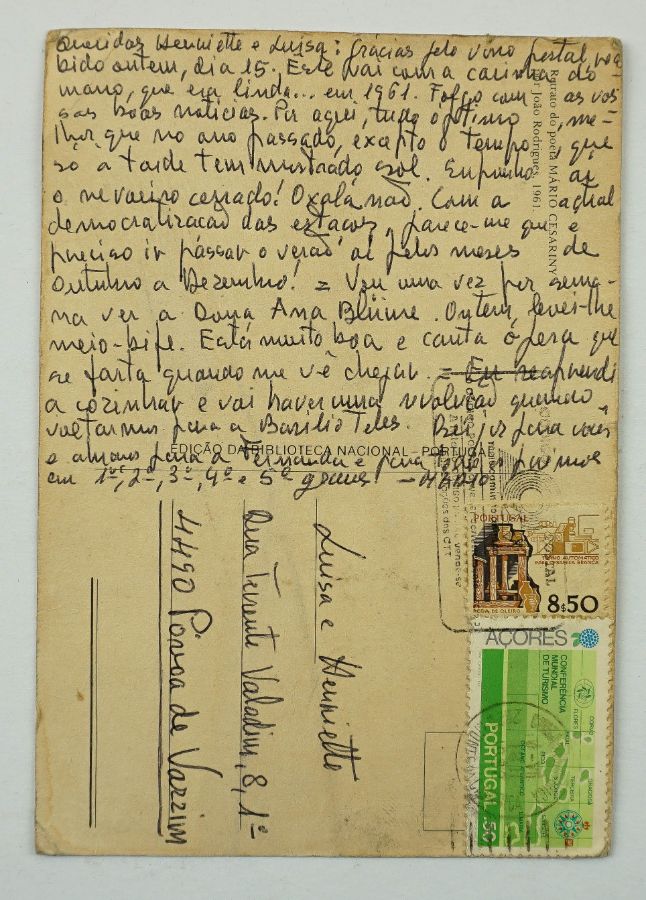 Queridas Henriette e Luísa: Grácias pelo vino postal, rece-
bido ontem, dia 15. Este vai com a carinha do
mano, que era linda... em 1961. Folgo com as vos-
sas boas notícias. Por aqui, tudo óptimo, me-
lhor que no ano passado, excepto o tempo, que
só à tarde tem mostrado sol. Enquanto aí
o nevoeiro cerrado! Oxalá não. Com a actual
democratização das estações, parece-me que é
preciso ir passar o verão aí pelos meses de
Outubro a Dezembro! = Vou uma vez por sema-
na ver a Dona Ana Blüme. Ontem, levei-lhe
meio-bife. Está muito boa e canta ópera que
se farta quando me vê chegar. = Eu reaprendi
a cozinhar e vai haver uma revolução quando
voltarmos para a Basílio Teles. Beijos para vocês
e amanos para a Fernanda e para todos os primos
em 1º, 2º, 3º, 4º e 5º graus —Mário
Retrato do poeta MÁRIO CESARINY
por João Rodrigues, 1961.
EDIÇÃO DA BIBLIOTECA NACIONAL - PORTUGAL
Luisa e Henriette
Rua Tenente Valadim, 8, 1º
4490 Póvoa de Varzim
PORTUGAL
FORNO AUTOMÁTICO
PARA CERÂMICA
RODA DE OLEIRO
8$50
AÇORES
CONFERÊNCIA
MUNDIAL
DE TURISMO
PORTUGAL
CORVO
FLORES
FAIAL
PICO
TERCEIRA